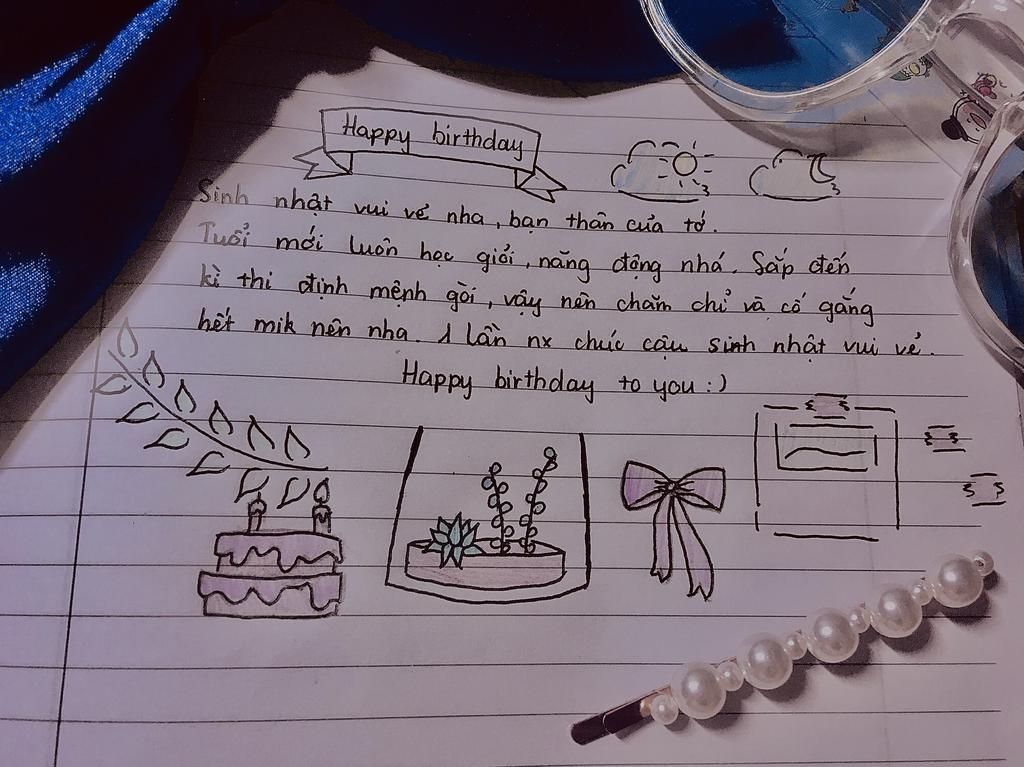 Happy birthday
Sinh nhật vui vẻ nha, bạn thân của tớ.
Tuổi mới luôn học giỏi, năng động nhá. Sắp đến
kì thi định mệnh gòi, vậy nên chăm chỉ và cố gắng
hết mik nên nha. 1 lần nx chúc cậu sinh nhật vui vẻ.
Happy birthday to you :)